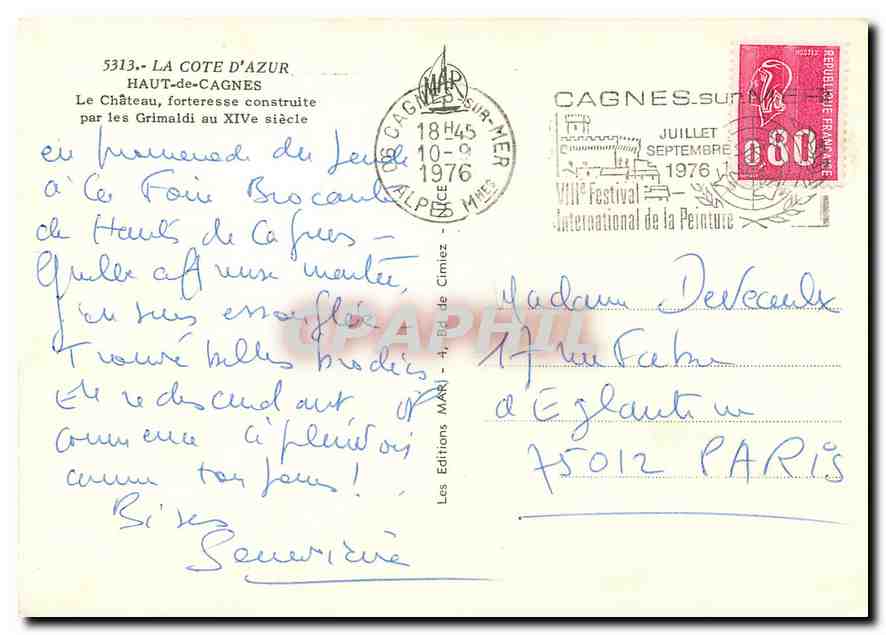 5313.- LA COTE D'AZUR
HAUT-de-CAGNES
Le Château, forteresse construite
par les Grimaldi au XIVe siècle
en promenade du Jeudi
à la Foire Brocante
de Hauts de Cagnes -
Quelle affreuse montée,
j'en suis essouflée
Trouvé belles
En redescendant, il
commence à pleuvoir
comme toujours!
Bises
Geneviève
MAR
06 CAGNES-SUR-MER
18H45
10-9
1976
ALPES Mmes
Les Editions MAR - 4, Bd de Cimiez - NICE
CAGNES-sur-MER
JUILLET
SEPTEMBRE
1976
VIIIe Festival
International de la Peinture
POSTES
REPUBLIQUE FRANÇAISE
0,80
Madame Deveaulx
17 rue Fabre
d'Eglantine
75012 PARIS
CPAPHIL